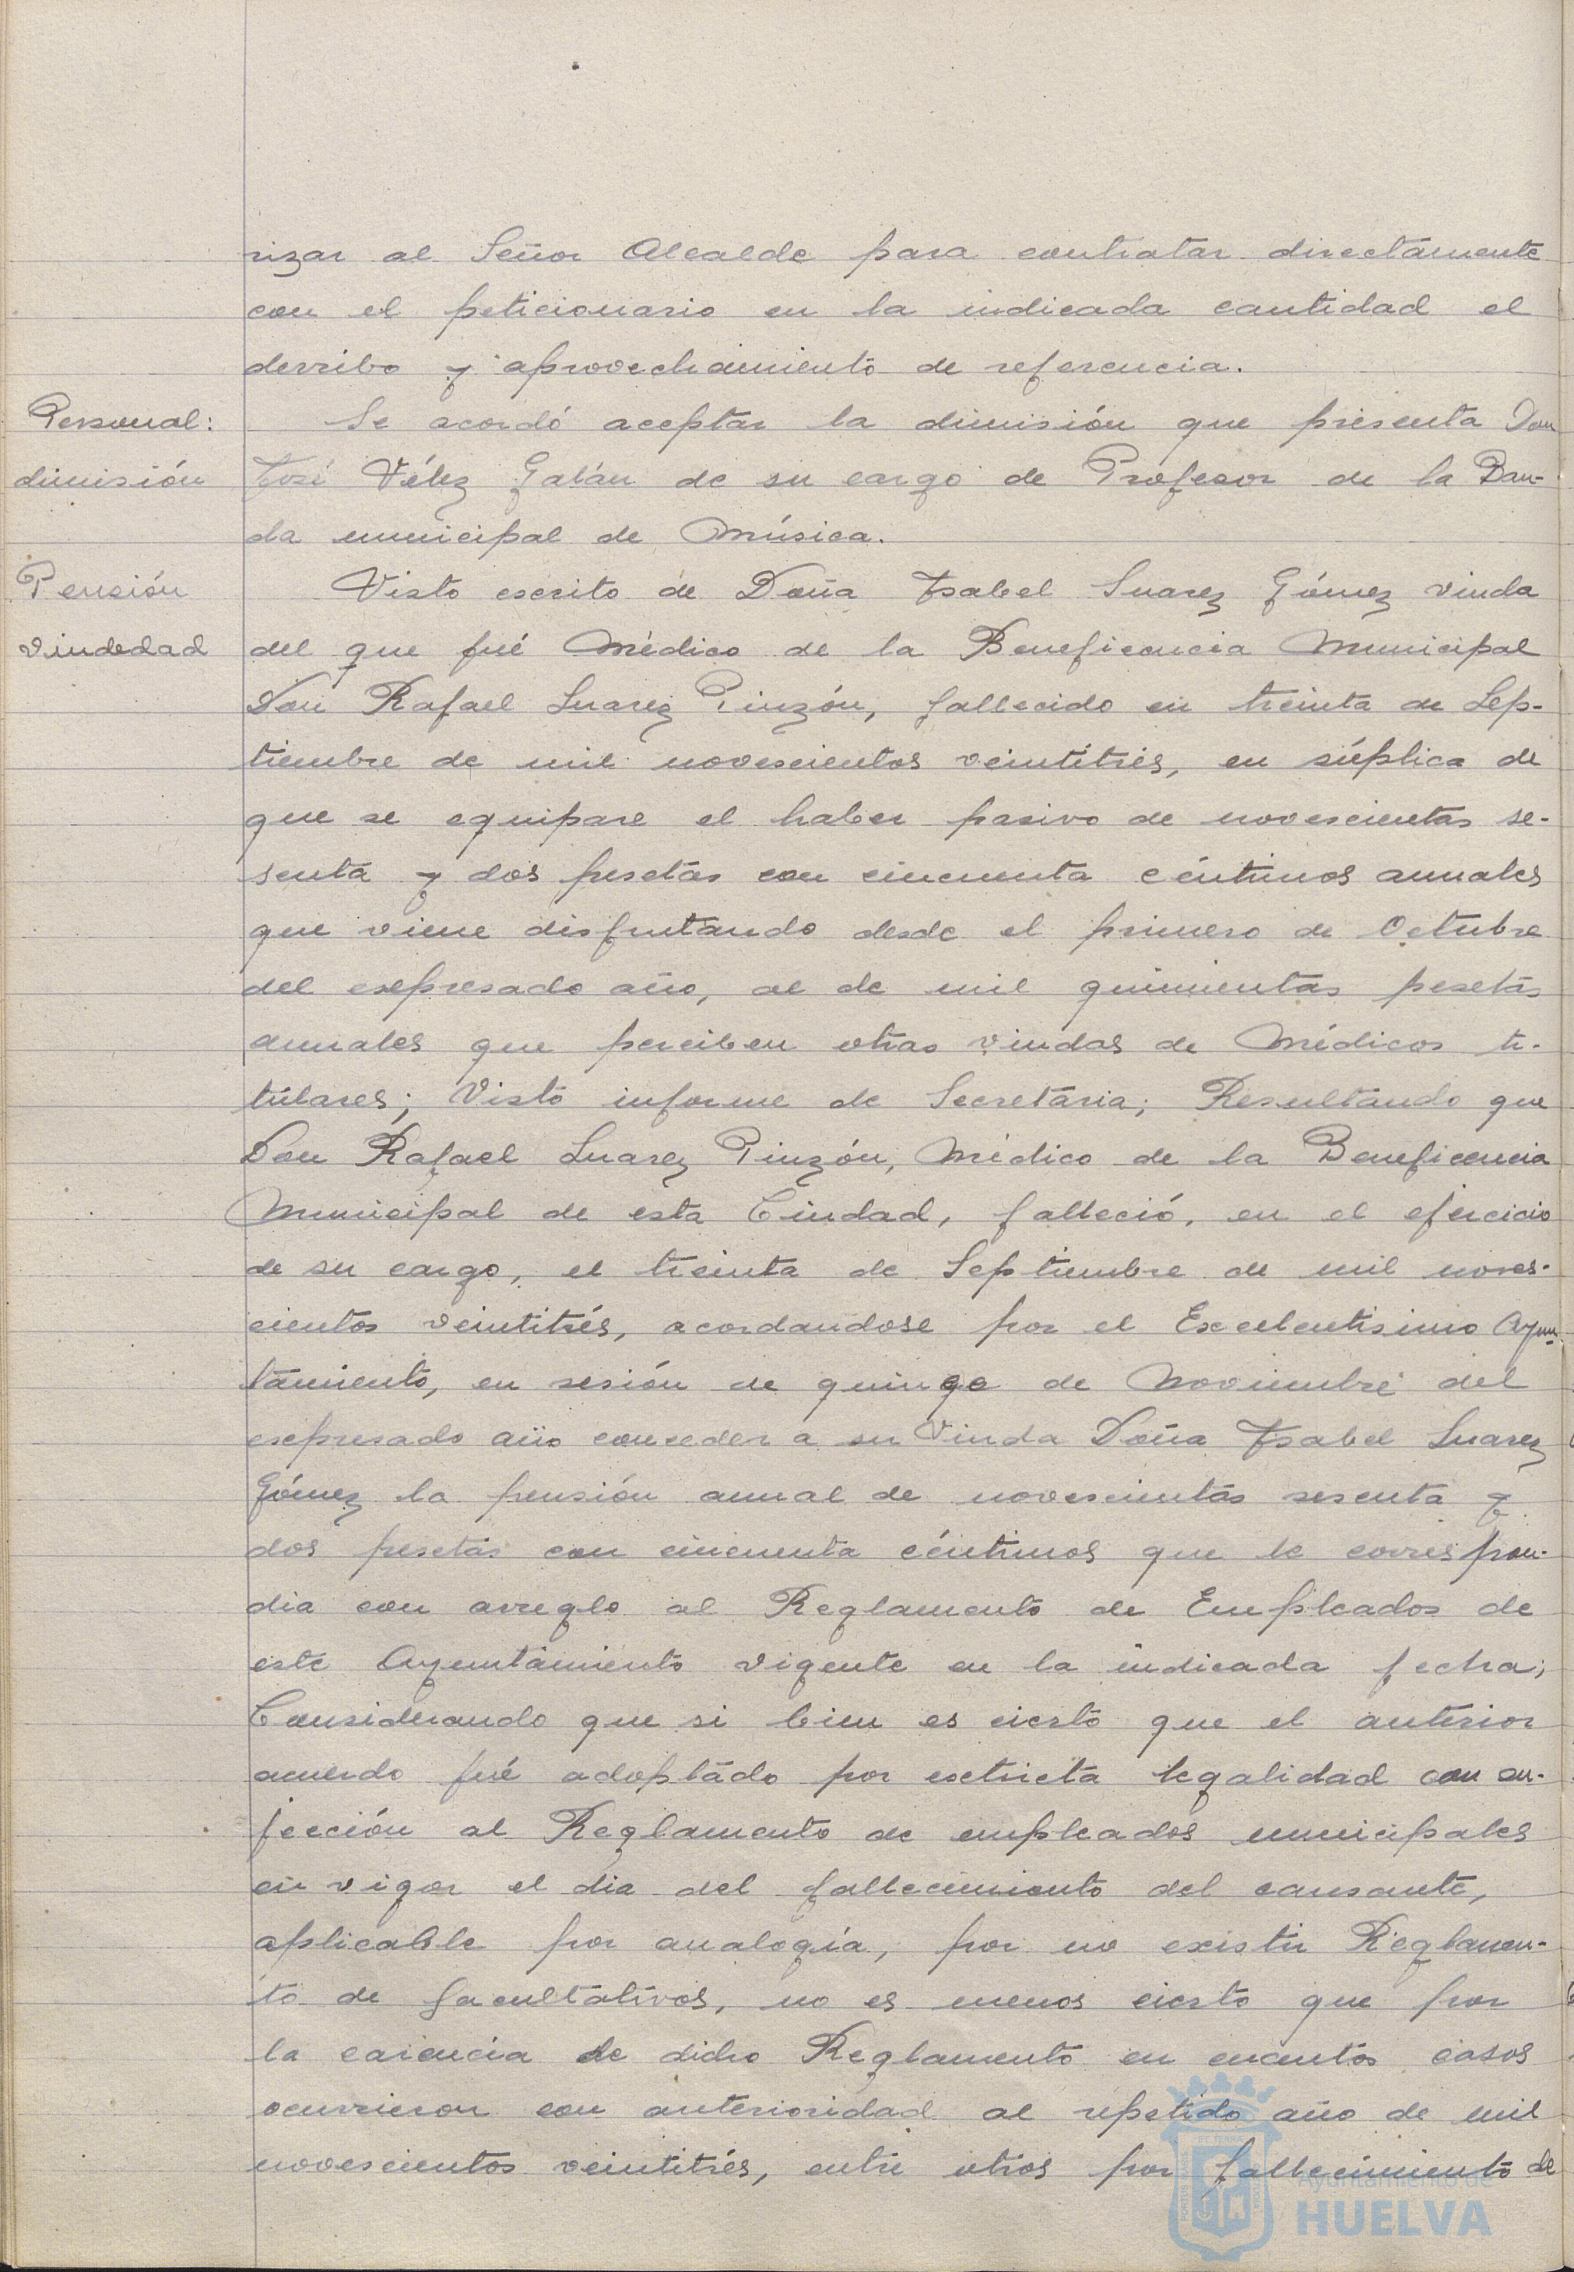 rizar al Señor Alcalde para contratar directamente
con el peticionario en la indicada cantidad el
derribo y aprovechamiento de referencia.
Personal:
dimisión
Se acordó aceptar la dimisión que presenta Don
José Vélez Galán de su cargo de Profesor de la Ban-
da municipal de Música.
Pensión
viudedad
Visto escrito de Doña Isabel Suarez Gómez viuda
del que fué Médico de la Beneficencia Municipal
Don Rafael Suarez Pinzón, fallecido en treinta de Sep-
tiembre de mil novescientos veintitrés, en súplica de
que se equipare el haber pasivo de novescientas se-
senta y dos pesetas con cincuenta céntimos anuales
que viene disfrutando desde el primero de Octubre
del expresado año, al de mil quinientas pesetas
anuales que perciben otras viudas de Médicos ti-
tulares; Visto informe de Secretaria; Resultando que
Don Rafael Suarez Pinzón, Médico de la Beneficencia
Municipal de esta Ciudad, falleció, en el ejercicio
de su cargo, el treinta de Septiembre de mil noves-
cientos veintitrés, acordandose por el Excelentisimo Ayun-
tamiento, en sesión de quince de Noviembre del
expresado año conceder a su Viuda Doña Isabel Suarez
Gómez la pensión anual de novescientas sesenta y
dos pesetas con cincuenta céntimos que le correspon-
dia con arreglo al Reglamento de Empleados de
este Ayuntamiento vigente en la indicada fecha;
Considerando que si bien es cierto que el anterior
acuerdo fué adoptado por estricta legalidad con su-
jección al Reglamento de empleados municipales
en vigor el dia del fallecimiento del causante,
aplicable por analogía, por no existir Reglamen-
to de facultativos, no es menos cierto que por
la carencia de dicho Reglamento en cuantos casos
ocurrieron con anterioridad al repetido año de mil
novescientos veintitrés, entre otros por fallecimiento de
Ayuntamiento de
HUELVA